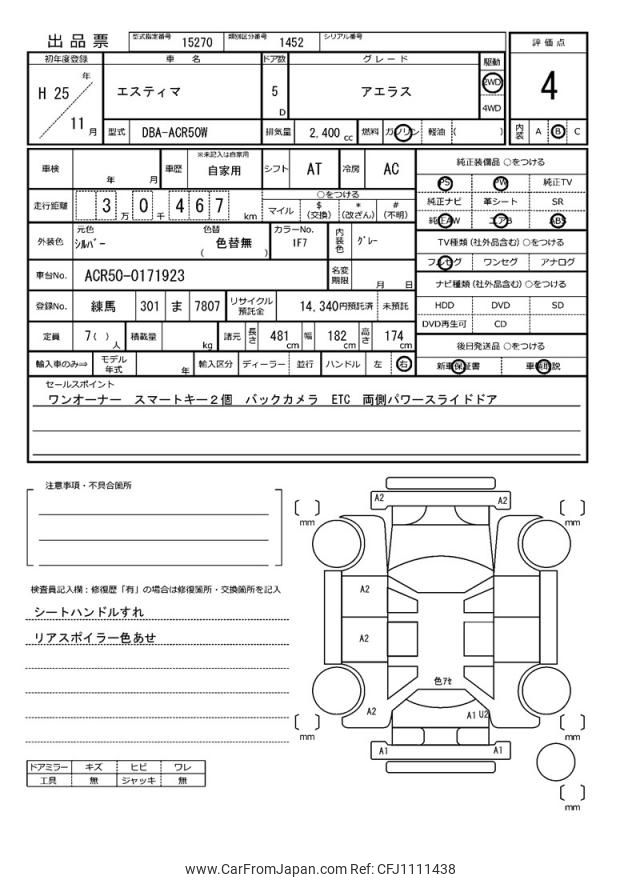 出品票 型式指定番号 15270 類別区分番号 1452 シリアル番号
評価点
4
内装 A B C
初年度登録 車名 ドア数 グレード 駆動
H 25 年 エスティマ 5 D アエラス 2WD
4WD
11 月 型式 DBA-ACR50W 排気量 2,400 cc 燃料 ガソリン 軽油 ( )
車検 年 月 車歴 ※未記入は自家用 自家用 シフト AT 冷房 AC
走行距離 3 万 0 千 4 6 7 km
○をつける
マイル $ (交換) * (改ざん) # (不明)
外装色 元色 シルバー 色替 色替無 ( ) カラーNo. 1F7 内装色 グレー
車台No. ACR50-0171923 名変期限 月 日
登録No. 練馬 301 ま 7807 リサイクル預託金 14,340円預託済 未預託
定員 7( ) 人 積載量 kg 諸元 長さ 481 cm 幅 182 cm 高さ 174 cm
輸入車のみ⇒ モデル年式 年 輸入区分 ディーラー 並行 ハンドル 左 右
純正装備品 ○をつける
PS PW 純正TV
純正ナビ 革シート SR
純正AW エアB ABS
TV種類 (社外品含む) ○をつける
フルセグ ワンセグ アナログ
ナビ種類 (社外品含む) ○をつける
HDD DVD SD
DVD再生可 CD
後日発送品 ○をつける
新車保証書 車輌取説
セールスポイント
ワンオーナー スマートキー2個 バックカメラ ETC 両側パワースライドドア
注意事項・不具合箇所
検査員記入欄:修復歴「有」の場合は修復箇所・交換箇所を記入
シートハンドルすれ
リアスポイラー色あせ
ドアミラー キズ ヒビ ワレ
工具 無 ジャッキ 無
A2 A2
[ ] mm
[ ] mm
A2
A2
色アセ
A2
A1 U2
[ ] mm
[ ] mm
A1 A1
[ ] mm
www.CarFromJapan.com Ref: CFJ1111438